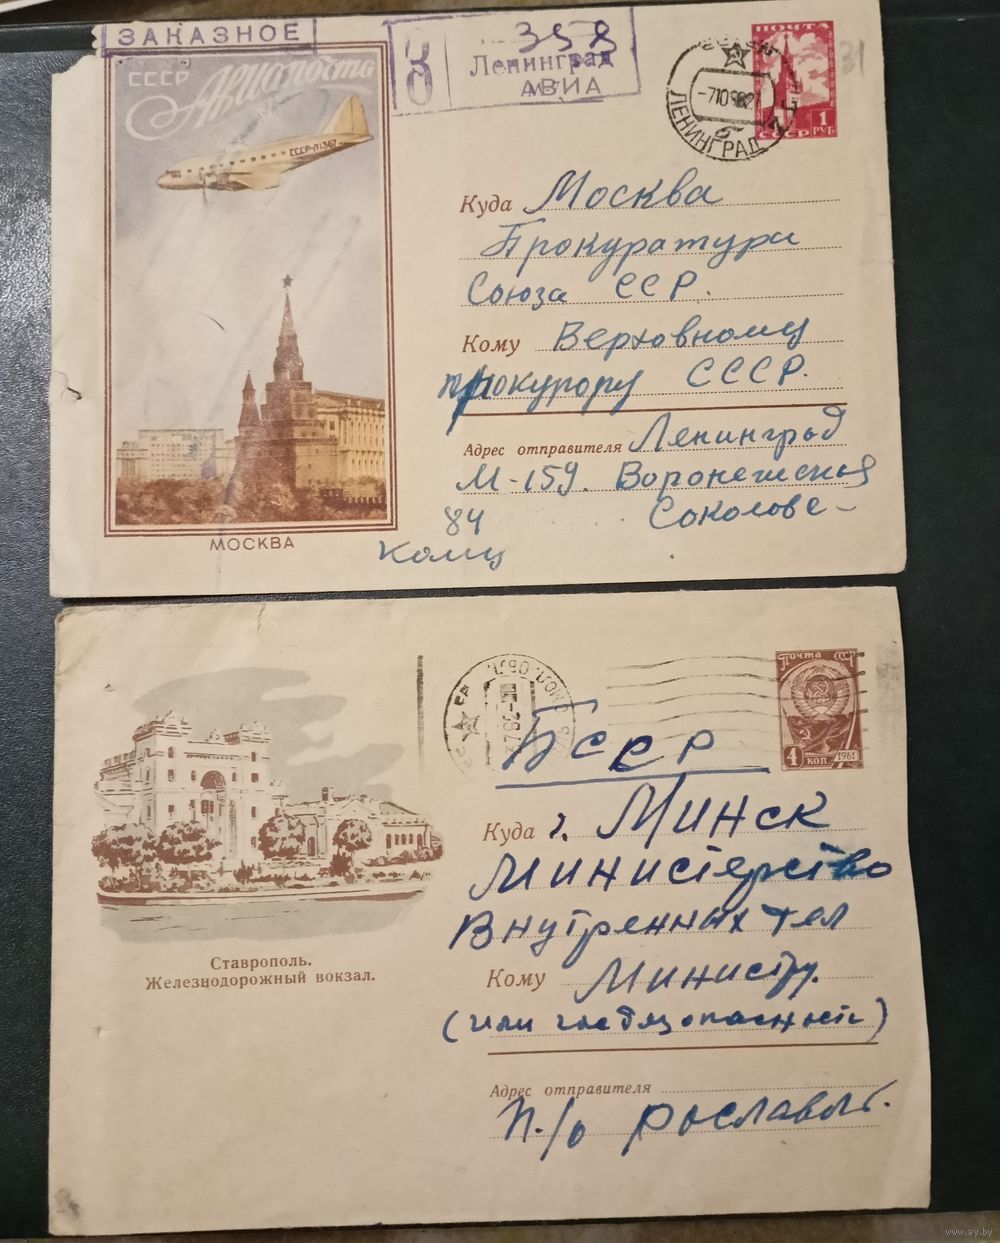 ЗАКАЗНОЕ
З 358
Ленинград
АВИА
СССР Авиапочта
СССР-Л1367
МОСКВА
ПОЧТА
1 РУБ
СССР
31
ЛЕНИНГРАД
Куда Москва
Прокуратура
Союза ССР.
Кому Верховному
прокурору СССР.
Адрес отправителя Ленинград
М-159. Воронежская
84 Соколовс-
кому
Почта СССР
4 коп 1961
СМОЛ. ОБЛ.
БССР
Куда г. Минск
Министерство
Внутренных тел
Кому Министру.
(или госбезопасность)
Ставрополь.
Железнодорожный вокзал.
Адрес отправителя
п./о рославль.
www.ay.by